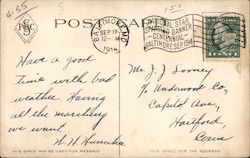 4155
150
POST CARD
BALTIMORE, MD.
SEP 1
12-M
191
NATIONAL STAR
SPANGLED BANNER
CENTENNIAL
BALTIMORE SEP. 1914
Have a good
time with bad
weather. Having
all the marching
we want.
Mr. J. J. Looney
% Underwood Co,
Capitol Ave,
Hartford
Conn
THIS SPACE MAY BE USED FOR MESSAGE
THIS SPACE FOR THE ADDRESS